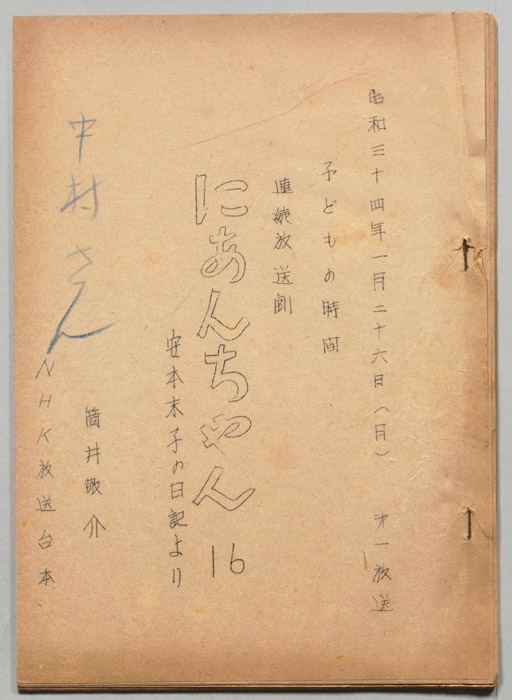 昭和三十四年一月二十六日(月) 才一放送
子どもの時間
連続放送劇
にあんちゃん 16
安本末子の日記より
筒井敬介
中村さん
NHK放送台本